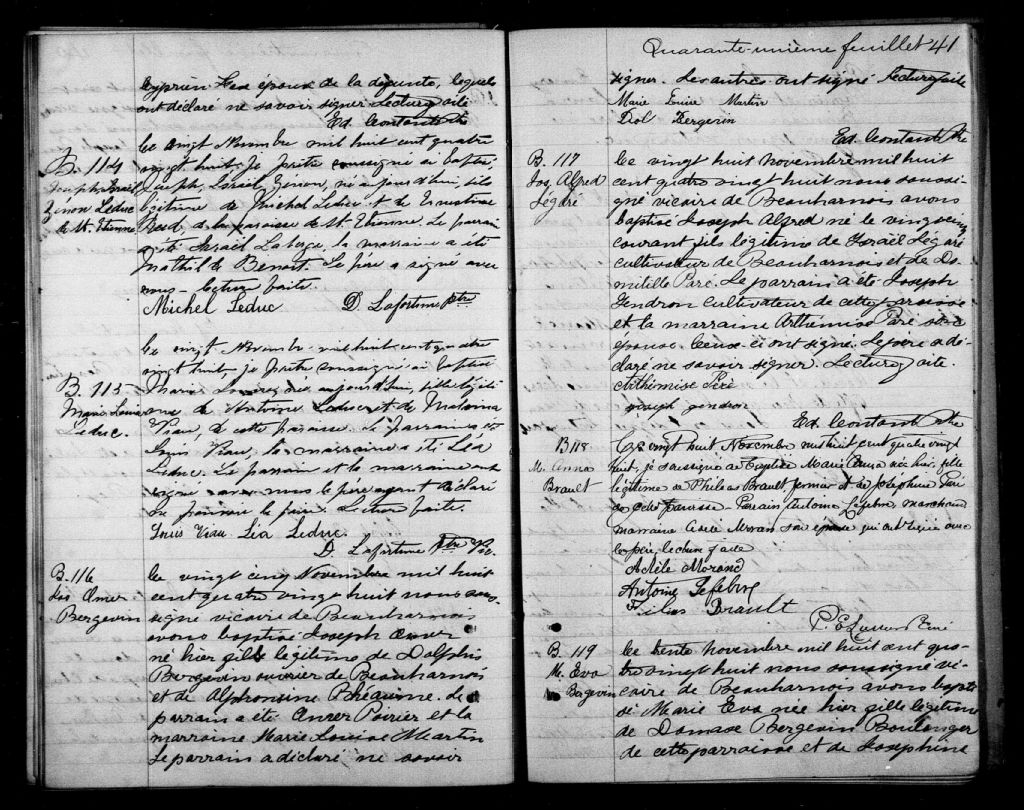 Cyprien Hex époux de la défunte, lequels
ont déclaré ne savoir signer. Lecture faite
Ed. Constant Ptre
B. 114
Joseph, Israël
Zénon Leduc
de St. Etienne
Le vingt Novembre mil huit cent quatre
vingt huit, Je prêtre soussigné ai baptisé
Joseph, Israël, Zénon, né aujourd'hui, fils
légitime de Michel Leduc et de Ernestine
de la paroisse de St. Etienne. Le parrain
a été Israël Laberge, la marraine a été
Mathilde Benoit. Le père a signé avec
nous - Lecture faite.
Michel Leduc D. Lafortune ptre
B. 115
Marie Louise
Leduc.
Le vingt Novembre mil huit cent quatre
vingt huit Je Prêtre soussigné ai baptisé
Marie Louise née aujourd'hui, fille légiti-
me de Antoine Leduc et de Malvina
Viau, de cette paroisse. Le parrain a été
Louis Viau, la marraine a été Léa
Leduc. Le parrain et la marraine ont
signé avec nous le père ayant déclaré
ne pouvoir le faire. Lecture faite.
Louis Viau Léa Leduc.
D. Lafortune ptre Vic.
B. 116
Jos Omer
Bergevin
Le vingt cinq Novembre mil huit
cent quatre vingt huit nous sous-
signé vicaire de Beauharnois
avons baptisé Joseph Omer
né hier fils légitime de Dolphis
Bergevin ouvrier de Beauharnois
et de Alphonsine Bréqume. Le
parrain a été Poirier et la
marraine Marie Louise Martin
Le parrain a déclaré ne savoir
Quarante-unième feuillet 41
signer. Les autres ont signé Lecture faite
Marie Louise Martin
Dol Bergevin
Ed. Constant Ptre
B. 117
Jos. Alfred
Légaré
Le vingt huit novembre mil huit
cent quatre vingt huit nous soussi-
gné vicaire de Beauharnois avons
baptisé Joseph Alfred né le vingt cinq
courant fils légitime de Israël Légaré
cultivateur de Beauharnois et de Do-
mitille Paré. Le parrain a été Joseph
Gendron cultivateur de cette paroisse
et la marraine Arthémise Paré son
épouse. Ceux-ci ont signé. Le père a dé-
claré ne savoir signer. Lecture faite.
Arthémise Péré
joseph gendron
Ed. Constant Ptre
B 118
M. Anna
Brault
Ce vingt huit Novembre mil huit cent quatre vingt
huit, je soussigné ai Baptisé Marie Anna née hier, fille
légitime de Philéas Brault fermier et de Joséphine
de cette paroisse. Parrain Antoine Lefebvre, marchand
marraine Adèle Morand son épouse qui ont signé avec
le père, lecture faite
Adèle Morand
Antoine Lefebvre
Filias Brault
B. 119
M. Eva
Bergevin
Le trente novembre mil huit cent qua-
tre vingt huit nous soussigné vi-
caire de Beauharnois avons bapti-
sé Marie Eva née hier fille légitime
de Damase Bergevin Boulanger
de cette paroisse et de Joséphine